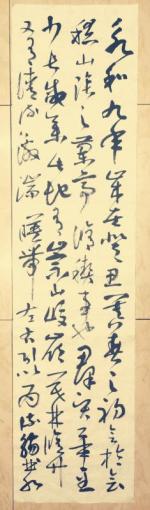 永和九年歲在癸丑暮春之初會於會
稽山陰之蘭亭脩禊事也群賢畢至
少長咸集此地有崇山峻嶺茂林脩竹
又有清流激湍暎帶左右引以為流觴曲水